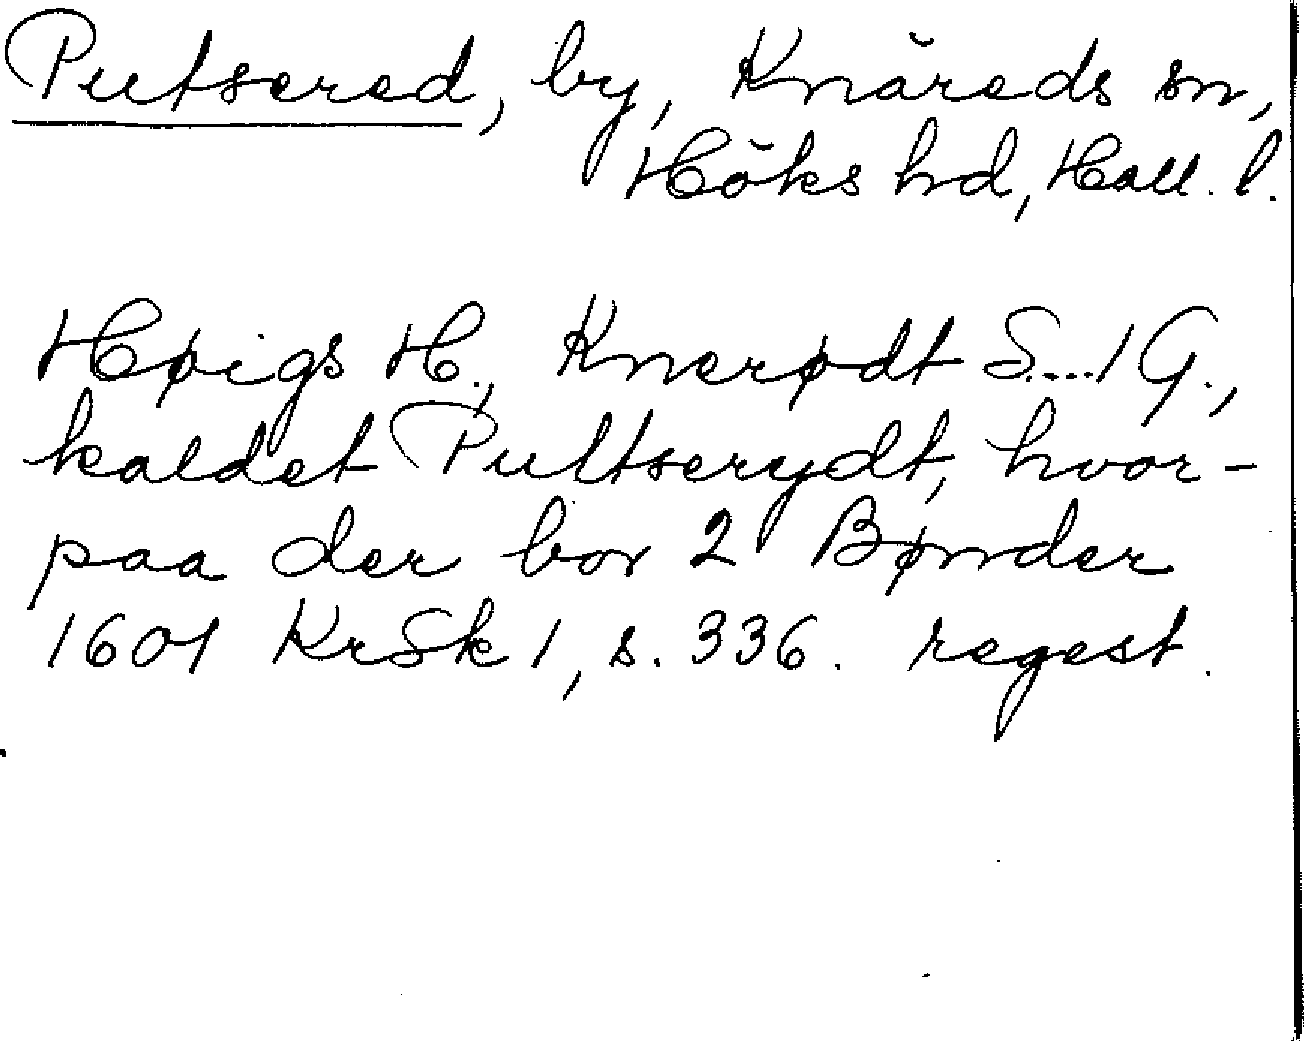 Putsered, by, Knäreds sn,
Höks hd, Hall. l.
Høigs H., Knerødt S....1 G.,
kaldet Pultserydt, hvor-
paa der bor 2 Bønder
1601 KrSk 1, s. 336. regest.